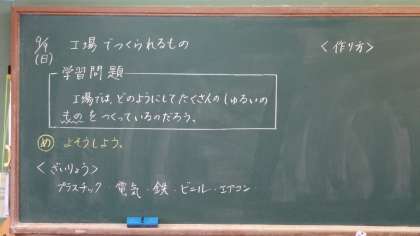 9/9 工場でつくられるもの <作り方>
(日)
学習問題
工場では、どのようにしてたくさんのしゅるいの
ものをつくっているのだろう。
め よそうしよう。
<ざいりょう>
プラスチック・電気・鉄・ビニール・エアコン